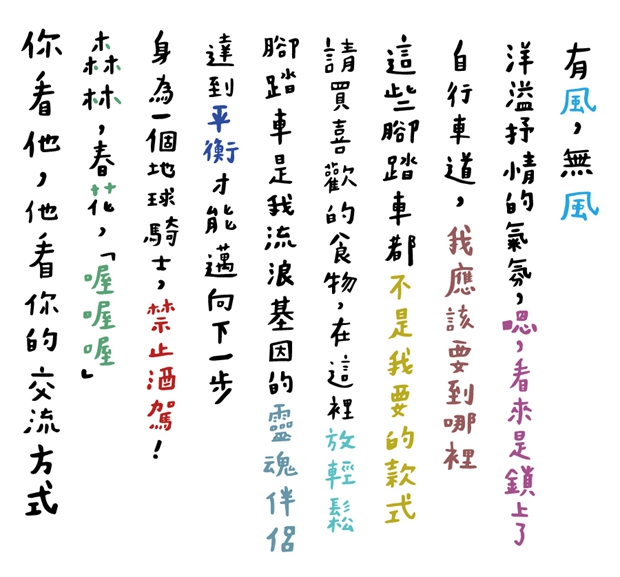 有風,無風
洋溢抒情的氣氛,嗯,看來是鎖上了
自行車道,我應該要到哪裡
這些腳踏車都不是我要的款式
請買喜歡的食物,在這裡放輕鬆
腳踏車是我流浪基因的靈魂伴侶
達到平衡才能邁向下一步
身為一個地球騎士,禁止酒駕!
森林,春花,「喔喔喔」
你看他,他看你的交流方式